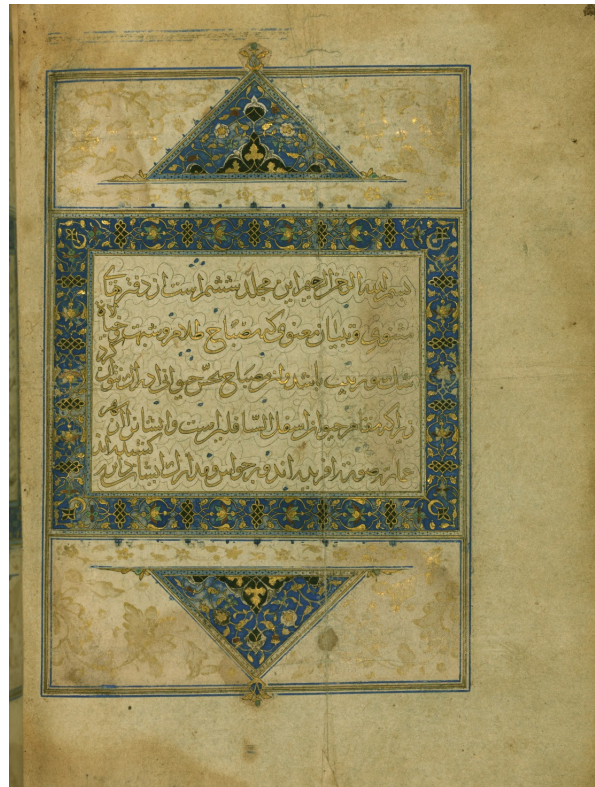 بسم الله الرحمن الرحیم این مجلد ششم است از دفترهای
مثنوی و تبیان معنوی که مصباح ظلام و شبهت و خیالات
شک و ریبت باشد و این مصباح بحس حیوانی ادراک نتوان کرد
زیرا که مقام حیوانی اسفل السافلین است و ایشانرا از بهر
عمارت صورت آفریده اند و بر حواس و مدارک ایشان دایره کشیده اند